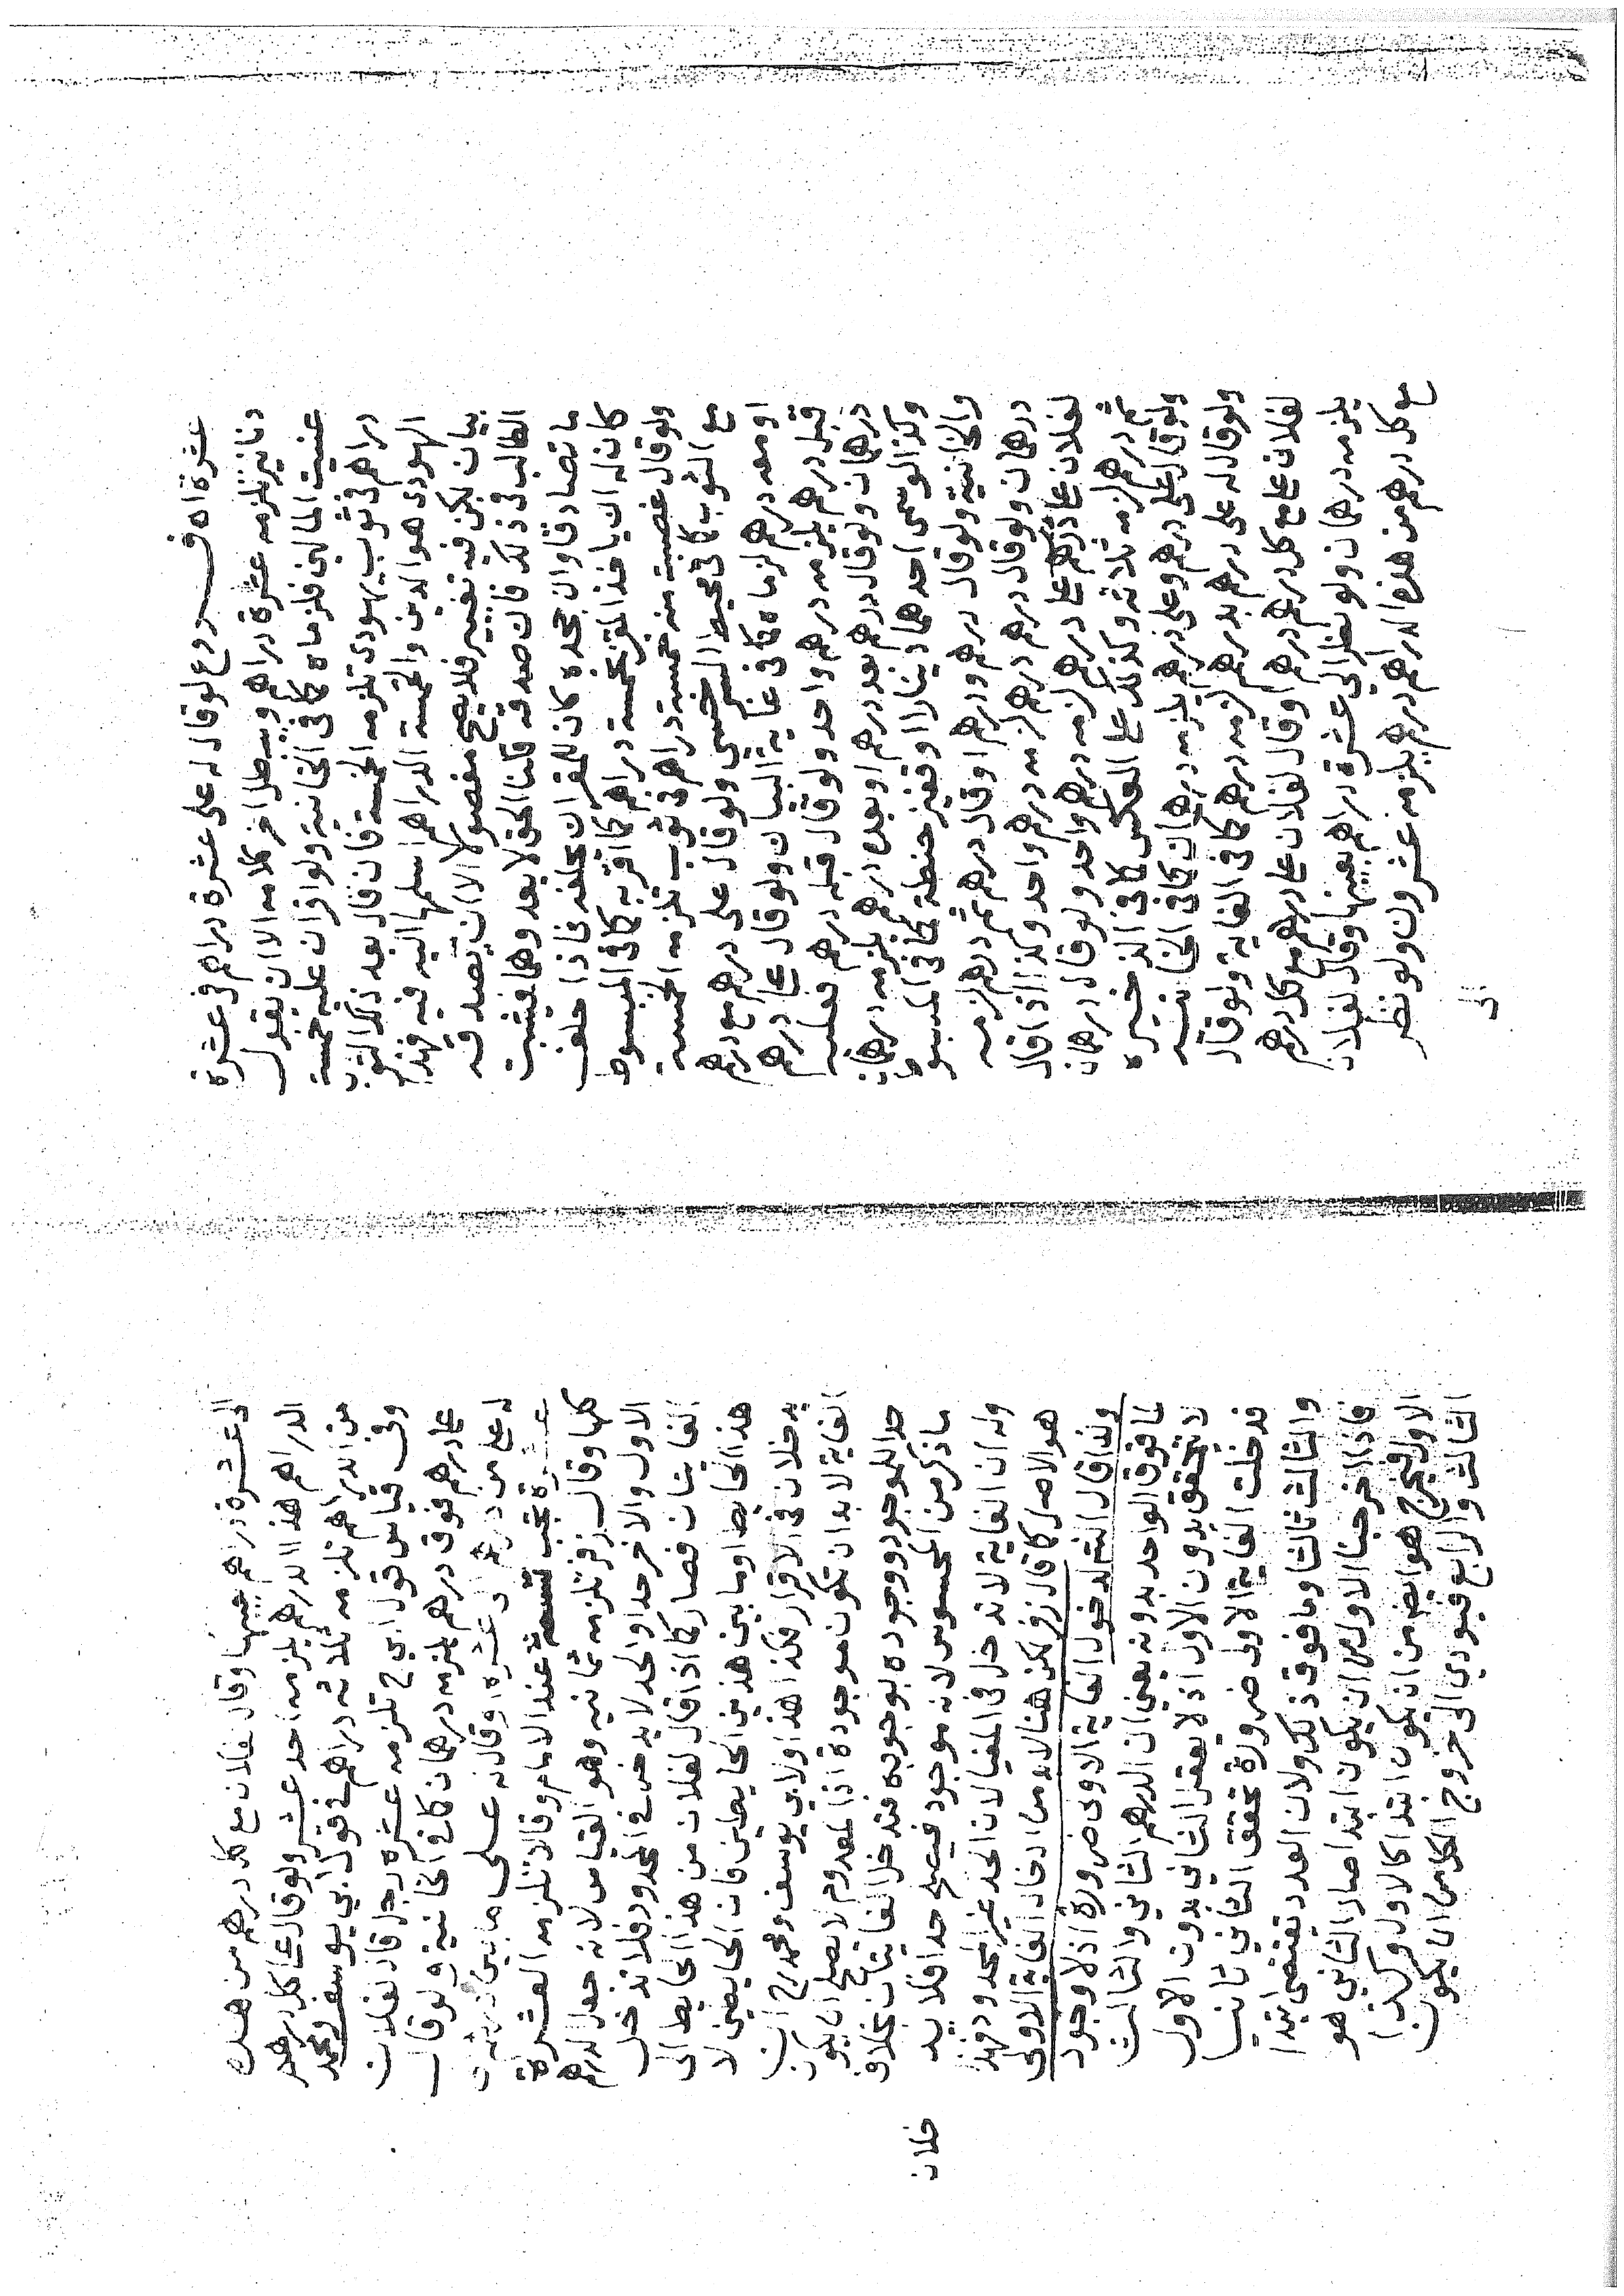 عشرة اه فـروع لو قال له على عشرة دراهم في عشرة
دنانير تلزمه عشرة دراهم ويبطل اخر كلامه الا ان يقول
عنيت المالين فلزماه كما في الخانية ولو اقر ان عليه خمسة
دراهم في ثوب يهودى تلزمه الخمسة فان قال بعد ذكر الثوب
اليهودى هو الدين والخمسة الدراهم اسلمها اليه فيه فهذا
بيان لكن فيه تغيير فلا يصح مفصولا الا ان يصدقه
الطالب في ذلك فان صدقه قلنا الحق لا يعدوهما فيثبت
ما تصادقا وان جحده كان للمقر ان يحلفه فاذا حلف
كان له ان ياخذ المقر بخمسة دراهم كما اقر به كما في المبسوط
ولو قال غصبت منه خمسة دراهم في ثوب تلزمه الخمسة
مع الثوب كما في محيط السرخسي ولو قال على درهم مع درهم
او معه درهم لزماه كما في غاية البيان ولو قال على درهم
قبل درهم يلزمه درهم واحد ولو قال قبله درهم فعليه
درهمان ولو قال درهم بعد درهم او بعده درهم يلزمه درهمان
وكذا لو سمى احدهما دينارا او قفيز حنطة كما في المبسوط
والخانية ولو قال درهم ودرهم او قال درهم ثم درهم لزمه
درهمان ولو قال درهم درهم لزمه درهم واحد وكذا اذا قال
لفلان على درهم على درهم لزمه درهم واحد ولو قال درهمان
ثم درهم لزمه ثلاثة وكذلك على العكس كما في الذخيرة
ولو قال على درهم وعلى درهم يلزمه درهمان كما في الخانيه
ولو قال له على درهم بدرهم لزمه درهم كما في الغاية ولو قال
لفلان على مع كل درهم درهم او قال لفلان على درهم مع كل درهم
يلزمه درهمان ولو نظر الى عشرة دراهم بعينها وقال لفلان
مع كل درهم من هذه الدراهم درهم يلزمه عشرون ولو نظر
الى
الى عشرة دراهم بعينها وقال لفلان مع كل درهم من هذه
الدراهم هذا الدرهم يلزمه احد عشر ولو قال على كل درهم
من الدراهم تلزمه ثلاثه دراهم في قول ابي يوسف ومحمد
وفي قياس قول ابي ح تلزمه عشره رجل قال لفلان
على درهم فوق درهم يلزمه درهمان كما في الخانية ولو قال
له على من درهم الى عشره او قال له على ما بين درهم الى
عشرة تجب تسعة عند الامام وقالا تلزمه العشرة
كلها وقال زفر تلزمه ثمانيه وهو القياس لانه جعل الدرهم
الاول والاخر حدا والحد لا يدخل في المحدود فلا تدخل
الغايتان فصار كما اذا قال لفلان من هذا الحايط الى
هذا الحايط او ما بين هذين الحايطين فان الحايطين لا
يدخلان في الاقرار فكذا هذا ولابي يوسف ومحمد رح ان
الغاية لا بد ان تكون موجودة اذ المعدوم لا يصلح ان يكون
حدا للموجود ووجوده بوجوبه فتدخل الغايتان بخلاف
ما ذكر من المحسوس لانه موجود فيصلح حدا فلا يد
خلان
وله ان الغاية لا تدخل في المغيا لان الحد غير المحدود فهذا
هو الاصل كما قال زفر لكن هنا لا بد من ادخال الغاية الاولى
ولذا قال الشـ لدخول الغاية الاولى ضرورة اذ لا وجود
لما فوق الواحد بدونه يعني ان الدرهم الثاني والثالث
لا يتحقق بدون الاول اذ لا يعقل الثاني بدون الاول
فدخلت الغاية الاولى ضرورة تحقق الثاني ثانيا
والثالث ثالثا وما فوق ذلك ولان العدد يقتضي ابتدا
فاذا اخرجنا الاول من ان يكون ابتدا صار الثاني هو
الاول فيخرج هو ايضا من ان يكون ابتدا كالاول وكذا
الثالث والرابع فيودي الى خروج الكل من ان يكون